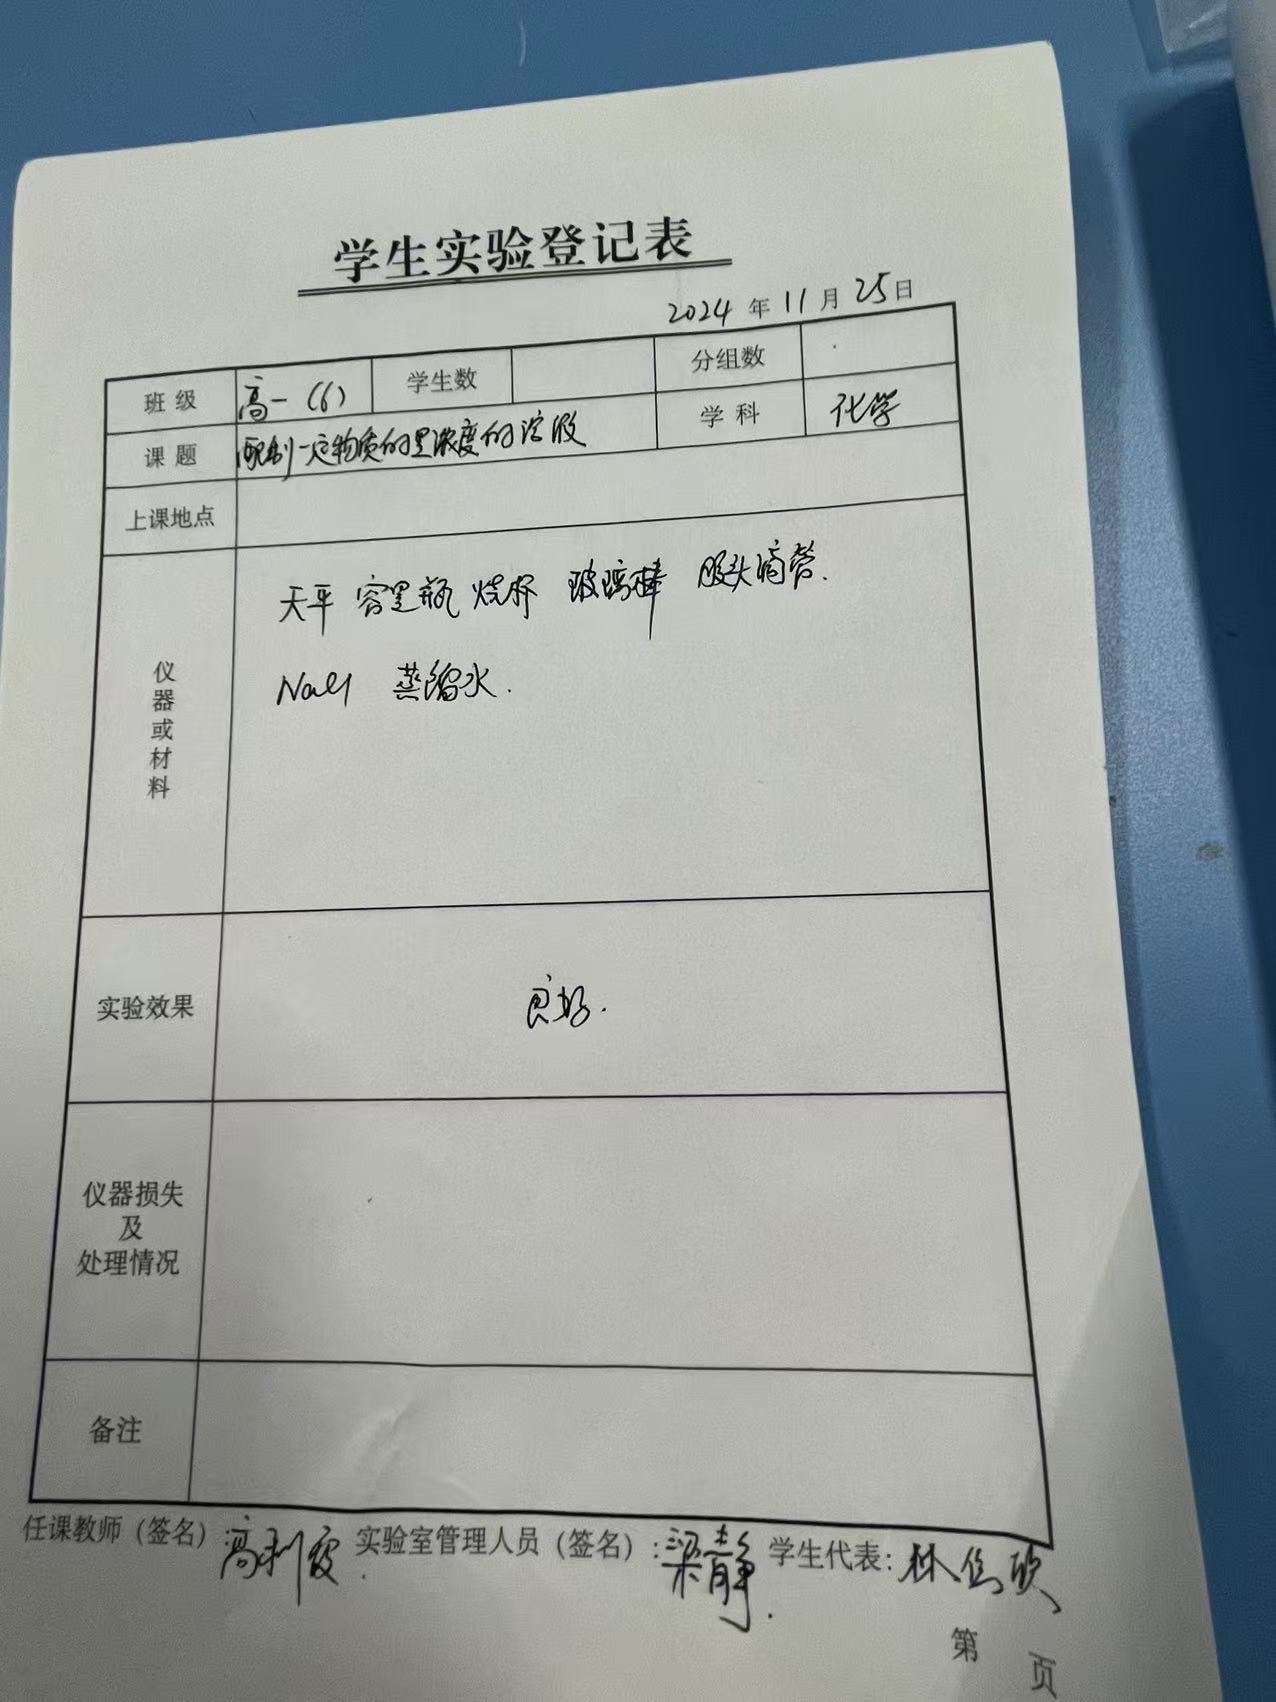 学生实验登记表
2024 年 11 月 25 日
班级 高一（6） 学生数 分组数
课题 配制一定物质的量浓度的溶液 学科 化学
上课地点
仪器或材料
天平 容量瓶 烧杯 玻璃棒 胶头滴管.
NaCl 蒸馏水.
实验效果 良好.
仪器损失
及
处理情况
备注
任课教师（签名）:高利霞. 实验室管理人员（签名）:梁静. 学生代表:林
第 页